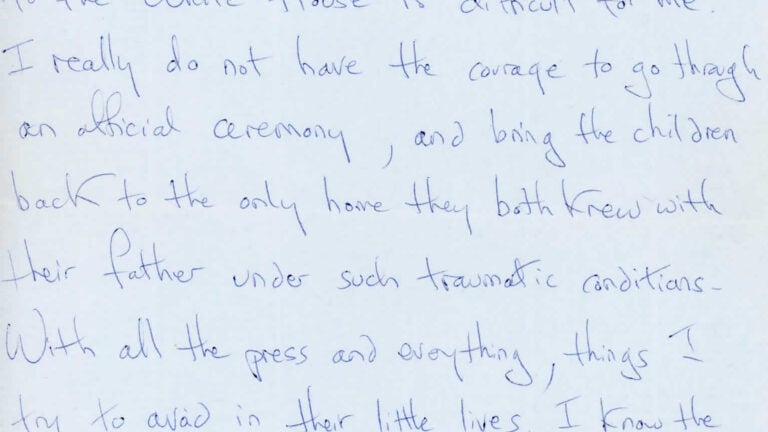 to the White House is difficult for me.
I really do not have the courage to go through
an official ceremony, and bring the children
back to the only home they both knew with
their father under such traumatic conditions-
With all the press and everything, things I
try to avoid in their little lives. I know the